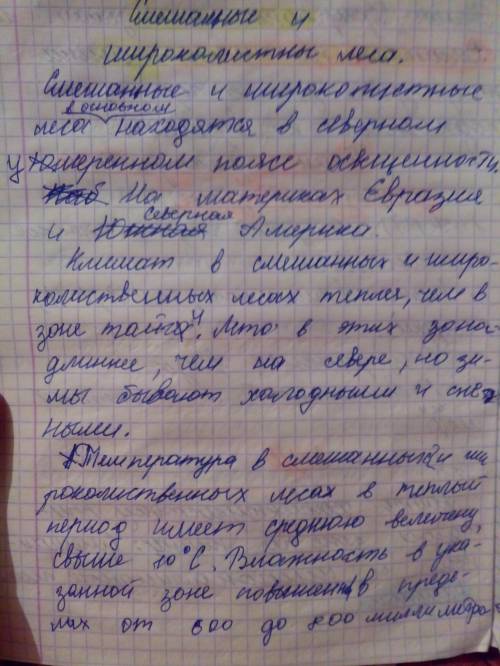 Смешанные и
широколистны леса.
Смешанные и широколистные
в основном
леса находятся в северном
умеренном поясе освещенности.
На материках Евразия
северная
и Южная Америка.
Климат в смешанных и широ-
колиственных лесах теплее, чем в
зоне тайги. Лето в этих зона-
длиннее, чем на севере, но зи-
мы бывают холодными и снеж
ными.
Температура в смешанных и ши
роколиственных лесах в теплый
период имеет среднюю величину,
свыше 10°C. Влажность в ука-
занной зоне повышена в преде-
лах от 600 до 800 миллиметро